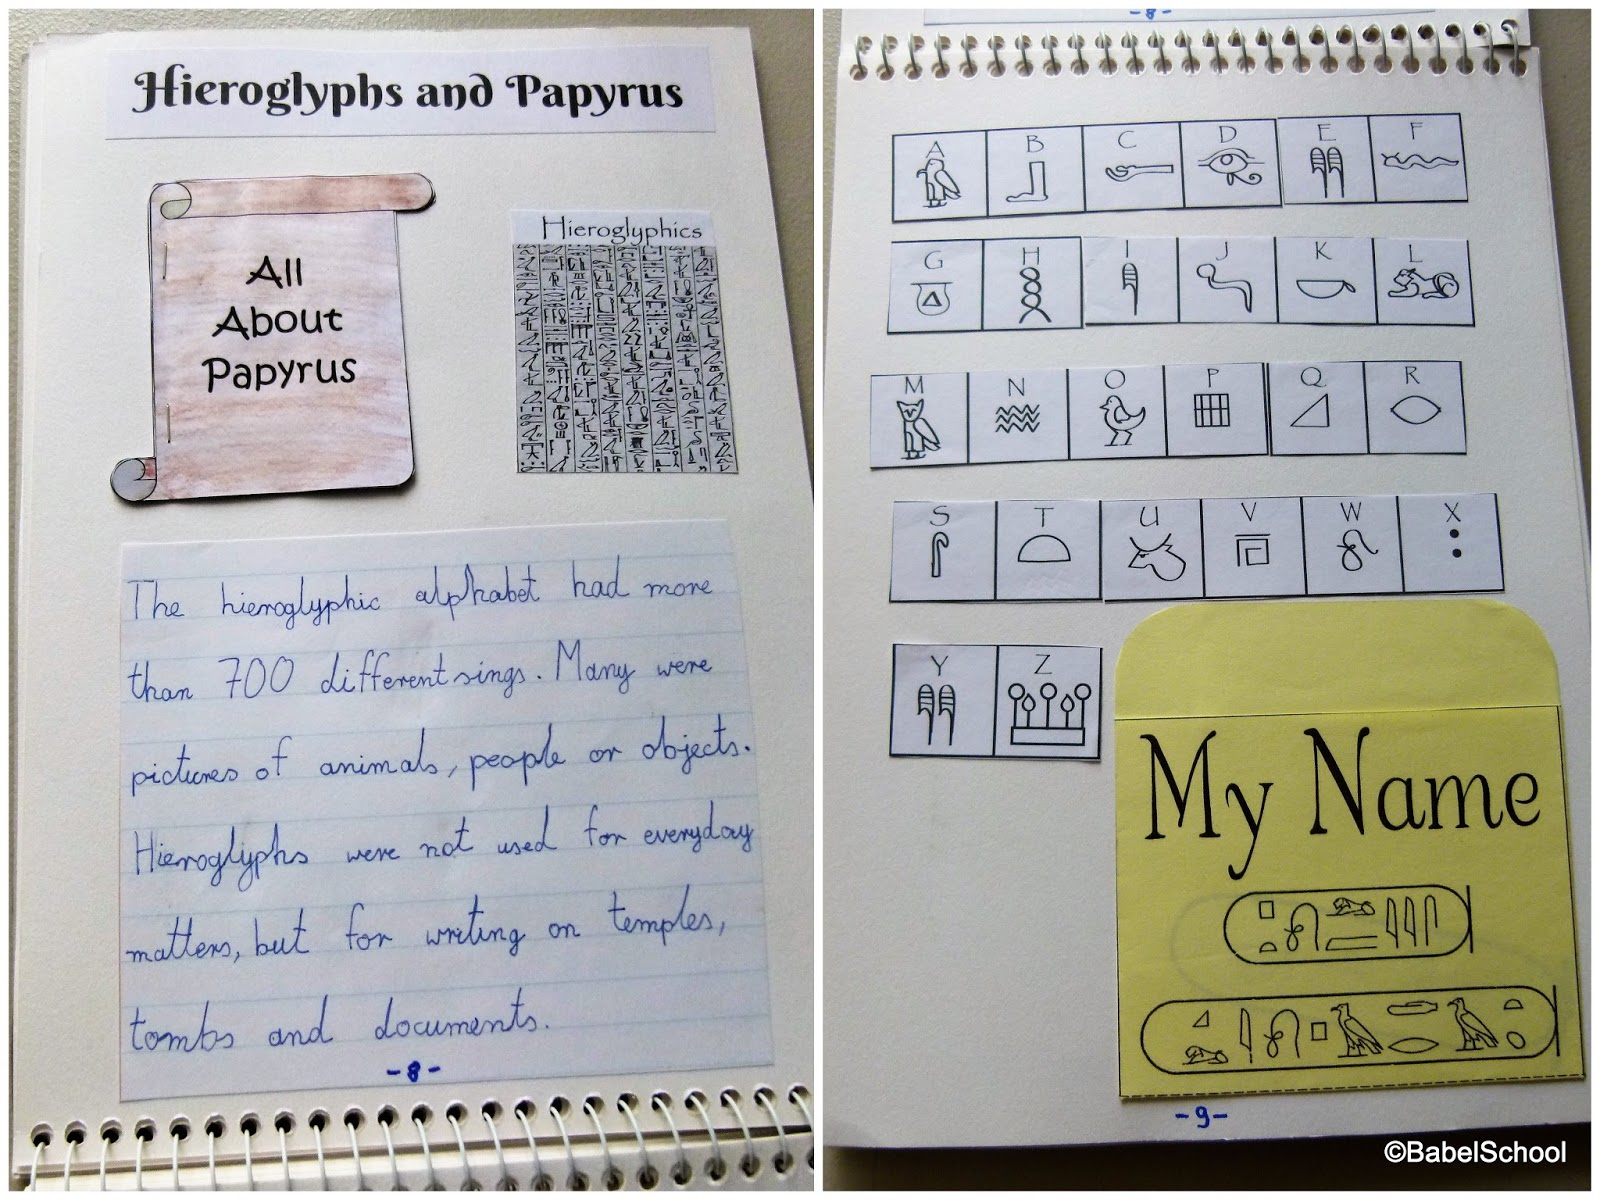 Hieroglyphs and Papyrus
All
About
Papyrus
Hieroglyphics
The hieroglyphic alphabet had more
than 700 different sings. Many were
pictures of animals, people or objects.
Hieroglyphs were not used for everyday
matters, but for writing on temples,
tombs and documents.
-8-
-8-
A B C D E F
G H I J K L
M N O P Q R
S T U V W X
Y Z
My Name
-9-
©BabelSchool